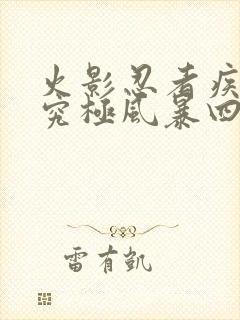 火影忍者疾
究极風暴四
雷有凯